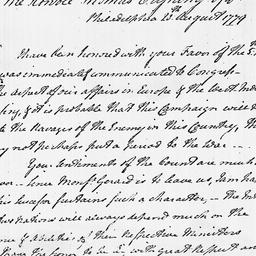 Philadelphia 12th August 1779
I have been honored with your Favor of the
was immediately communicated to Congress
aspect of our affairs in Europe & the West Ind
& it is probable that this Campaign will
the Ravages of the Enemy in this Country, th
not perhaps put a period to the War
Your Sentiments of the Count are much
since Monsr Gerard is to leave us, I am ha
his successor sustains such a Character, The
will always depend much on the
& Abilities of their Respective Ministers
I have the honor to be Sir with great Respect